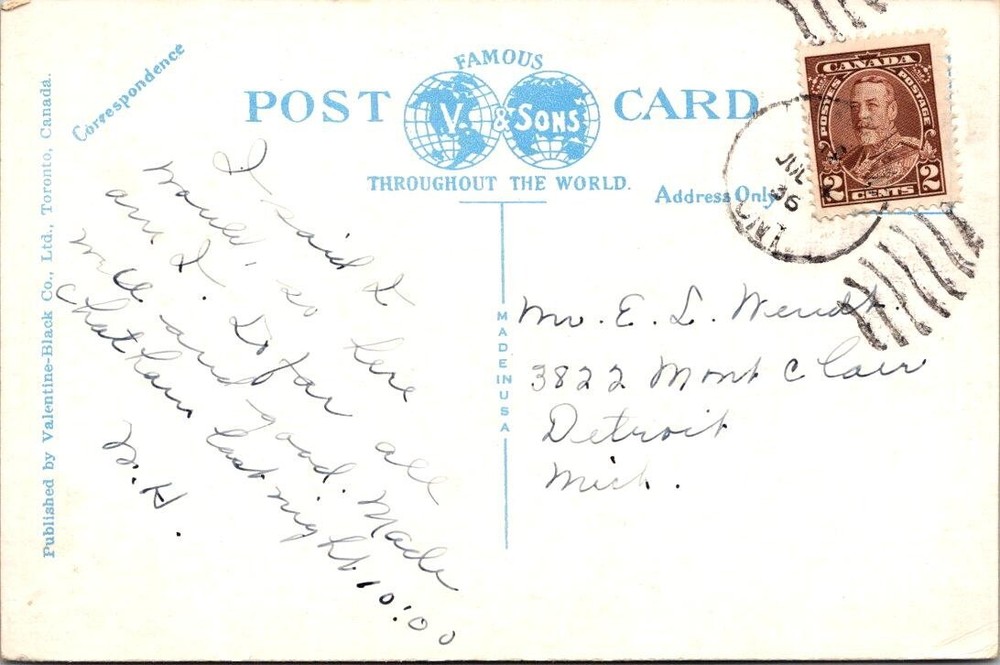 Correspondence
FAMOUS
POST CARD
V. & SONS
THROUGHOUT THE WORLD.
Address Only
Published by Valentine-Black Co., Ltd., Toronto, Canada.
MADE IN USA
CANADA
POSTES POSTAGE
2 CENTS 2
JUL
36
ONT
I said I
would, so here
am I. So far all
well and good. Made
Chatham last night 10:00
W.H.
Mr. E. L. Wendt.
3822 Mont Clair
Detroit
Mich.